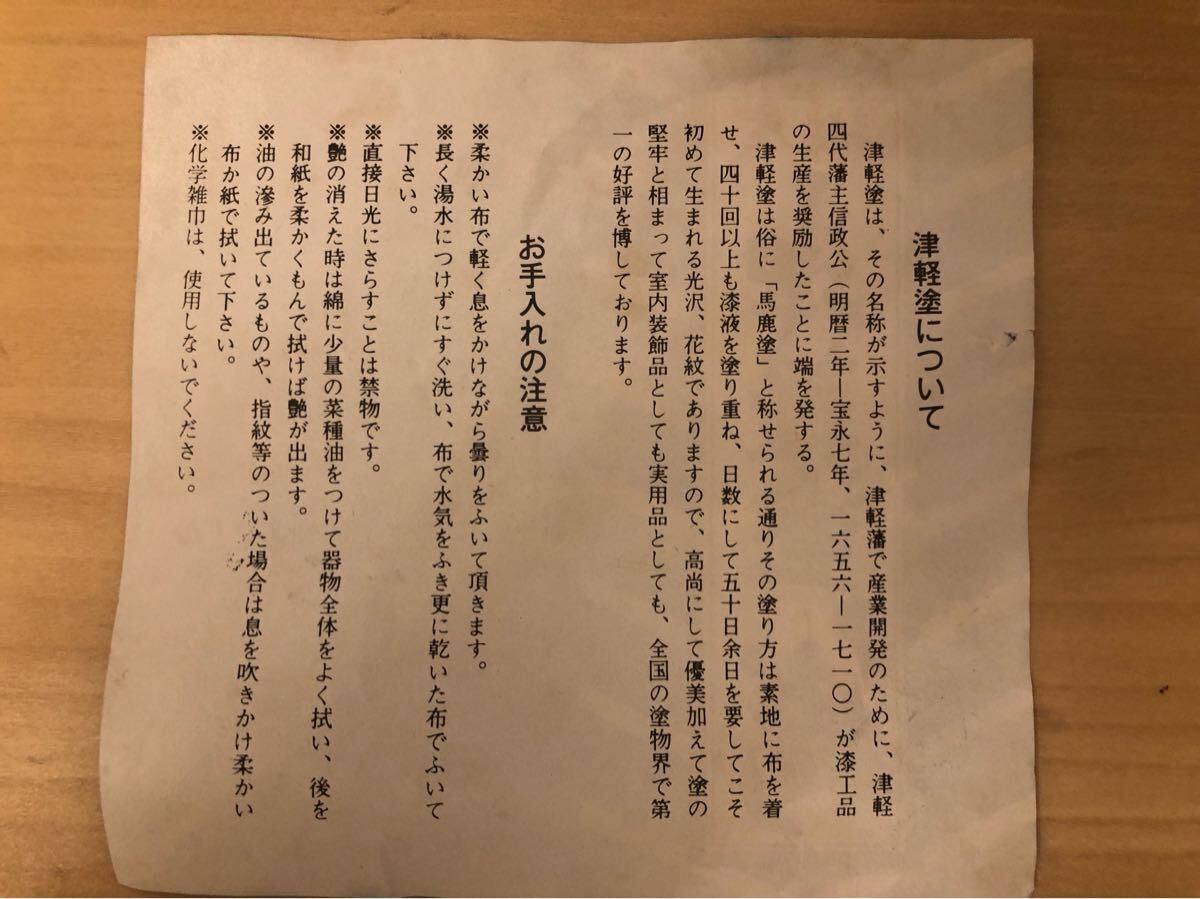 津軽塗について
津軽塗は、その名称が示すように、津軽藩で産業開発のために、津軽
四代藩主信政公（明暦二年―宝永七年、一六五六―一七一〇）が漆工品
の生産を奨励したことに端を発する。
津軽塗は俗に「馬鹿塗」と称せられる通りその塗り方は素地に布を着
せ、四十回以上も漆液を塗り重ね、日数にして五十日余日を要してこそ
初めて生まれる光沢、花紋でありますので、高尚にして優美加えて塗の
堅牢と相まって室内装飾品としても実用品としても、全国の塗物界で第
一の好評を博しております。
お手入れの注意
※柔かい布で軽く息をかけながら曇りをふいて頂きます。
※長く湯水につけずにすぐ洗い、布で水気をふき更に乾いた布でふいて
下さい。
※直接日光にさらすことは禁物です。
※艶の消えた時は綿に少量の菜種油をつけて器物全体をよく拭い、後を
和紙を柔かくもんで拭けば艶が出ます。
※油の滲み出ているものや、指紋等のついた場合は息を吹きかけ柔かい
布か紙で拭いて下さい。
※化学雑巾は、使用しないでください。